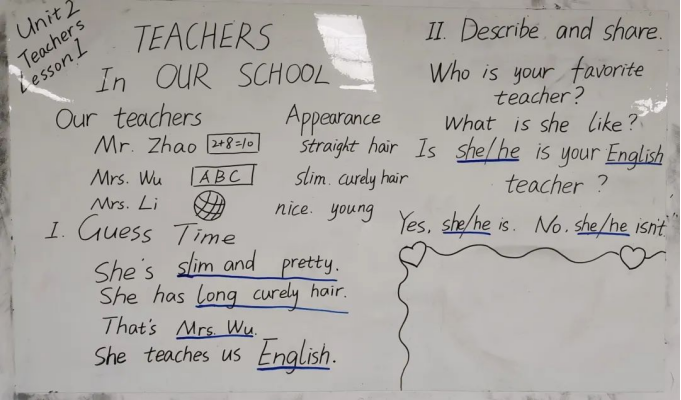 Unit 2
Teachers
Lesson 1
TEACHERS
In OUR SCHOOL
Our teachers Appearance
Mr. Zhao 2+8=10 straight hair
Mrs. Wu ABC slim. curely hair
Mrs. Li nice. young
I. Guess Time
She's slim and pretty.
She has long curely hair.
That's Mrs. Wu.
She teaches us English.
II. Describe and share.
Who is your favorite
teacher?
What is she like?
Is she/he is your English
teacher?
Yes, she/he is. No. she/he isn't